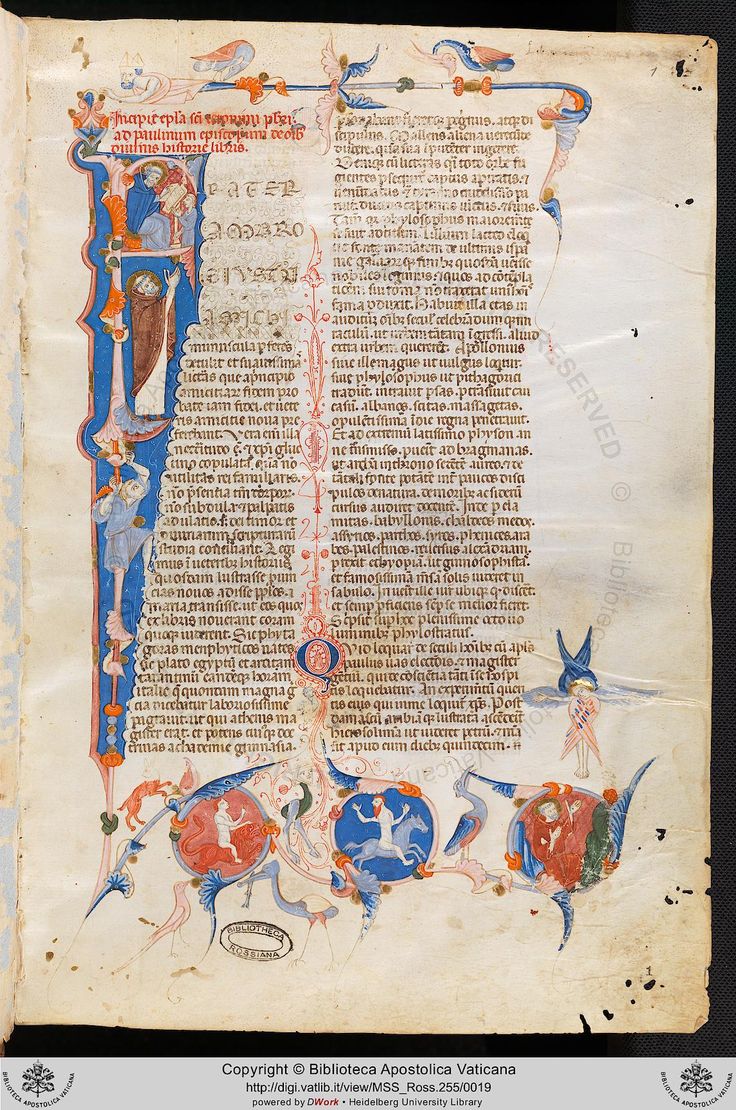 Incipit epla sci ieronimi pbri
ad paulinum episcopum de oib
diuinis historie libris.
FRATER
AMBRO
SIVS TU
A MICHI
munuscula pferes
detulit et suauissimas
litteras que a principio
amiciciarum fidem pro
bate iam fidei, et uete
ris amicicie noua pre
ferebant. Vera eni illa
necessitudo e. et xpi glu
tino copulata, qua no
utilitas rei familiaris.
no presentia tm corpor
no subdola et palpans
adulatio. s; dei timor et
diuinarum scripturarum
studia conciliant. Legi
mus i ueteribus historiis
quosdam lustrasse prouin
cias nouos adisse pplos.
maria transisse. ut eos quos
ex libris nouerant coram
quoque uiderent. Sic pytha
goras memphyticos uates
sic plato egyptum et architam
tarentinum eandemque horam
italie que quondam magna g
cia dicebatur laboriosissime
pagrauit. ut qui athenis ma
gister erat. et potens cuiusque doc
trinas achademie gimnasia
psonabant fieret pegrinus. atque di
scipulus. Malens aliena uerecunde
discere. quam sua ipudenter ingerere.
Deniq; cu litteras qsi toto orbe fu
gientes psequitur captus a piratis. et
uenundatus et tyranno crudelissimo pa
ruit. ductus captiuus uictus. et seruus.
Tam quia phylosophus maior emente
se fuit ad titum. Liuium lacteo eloq
tie fonte manantem de ultimis ispa
nie galliarumque finibz quosdam uenisse
nobiles legimus. et quos ad contepla
tionem sui roma non traxerat unius hois
fama pduxit. Habuit illa etas in
auditum oibz seculis celebrandum quem
raculum. ut urbem tantam igressi. aliud
extra urbem quererent. Apollonius
siue ille magus ut uulgus loquitur.
siue phylosophus ut pithagorici
tradunt. intrauit psas. ptransiuit cau
casum. albanos. scitas. massagetas.
opulentissima idie regna penetrauit.
Et ad extremum latissimo physon am
ne transmisso. puenit ad bragmanas.
ut iarcam in throno sedente aureo. et de
tantali fonte potante inter paucos disci
pulos de natura. de moribus ac siderum
cursu audiret docente. Inde p ela
mitas. babyllonios. chaldeos. medos.
assyrios. parthos. syros. phenices. ara
bes. palestinos. reuersus alexandriam
prexit ethyopiam. ut gimnosophistas
et famosissimam mensam solis uideret in
sabulo. Inuenit ille uir ubique qd disceret.
et semp pficiens semp se melior fieret.
Scpsit sup hoc plenissime octo uo
luminibz phylostratus.
Quid loquar de seculi hoibz cu apls
paulus uas electionis. et magister
gentium. qui de conscientia tanti ise hospi
tis loquebatur. An expimentum queri
tis eius qui in me loquitur xps. Post
damascum arabiamque lustratam ascedit
hierosolimam ut uideret petrum et man
sit apud eum diebz quindecim.
1
BIBLIOTHECA
ROSSIANA
1
RESERVED © Biblioteca Apostolica Vaticana
BIBLIOTECA APOSTOLICA VATICANA
Copyright © Biblioteca Apostolica Vaticana
http://digi.vatlib.it/view/MSS_Ross.255/0019
powered by DWork • Heidelberg University Library
BIBLIOTECA APOSTOLICA VATICANA